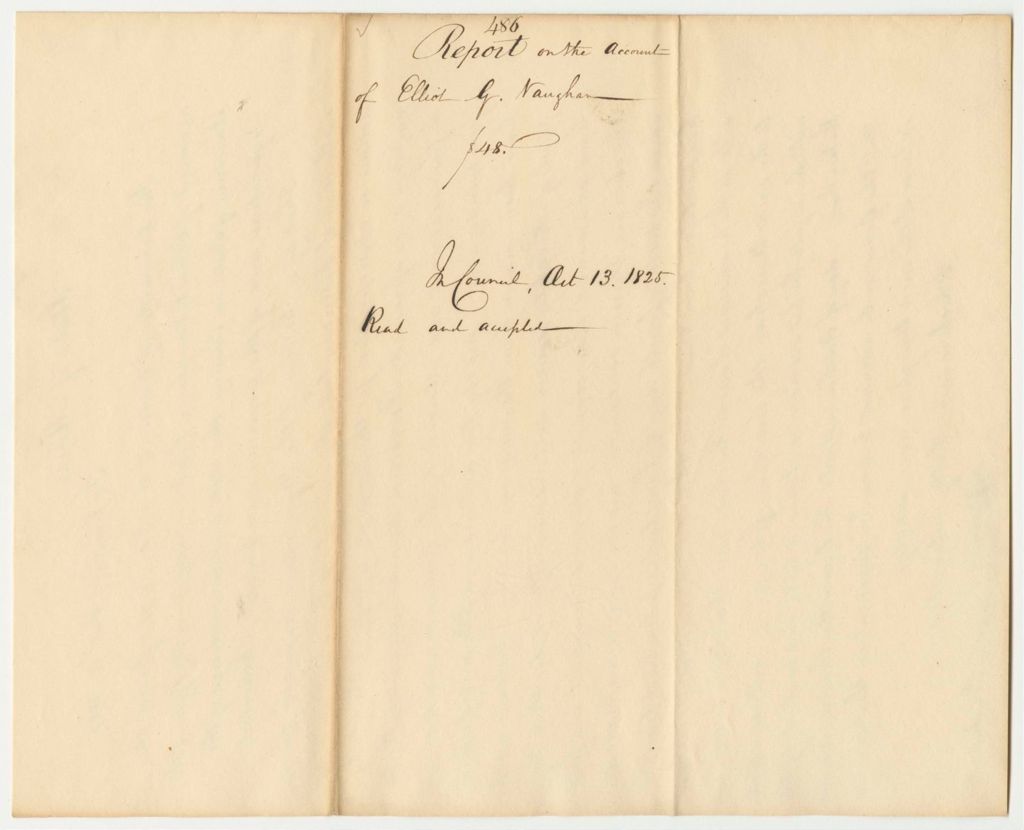 486
Report on the Account
of Elliot G. Vaughan
$48.
In Council, Oct 13. 1825.
Read and accepted